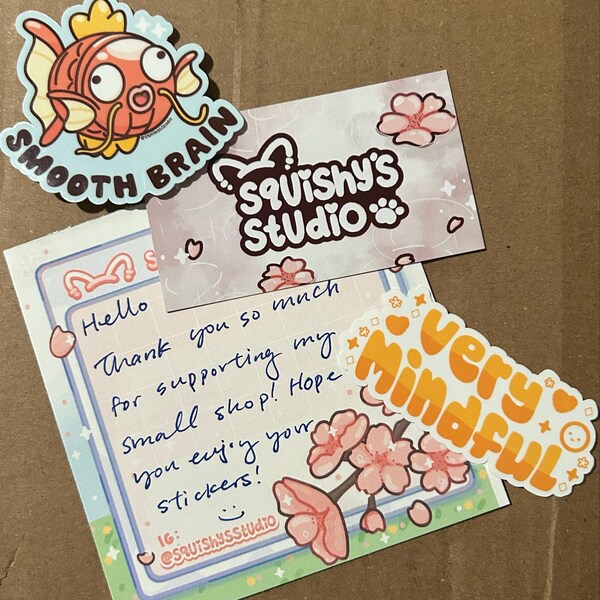 SMOOTH BRAIN
Squishy's
Studio
Hello
Thank you so much
for supporting my
small shop! Hope
you enjoy your
stickers!
IG:
@squishysstudio
very
Mindful